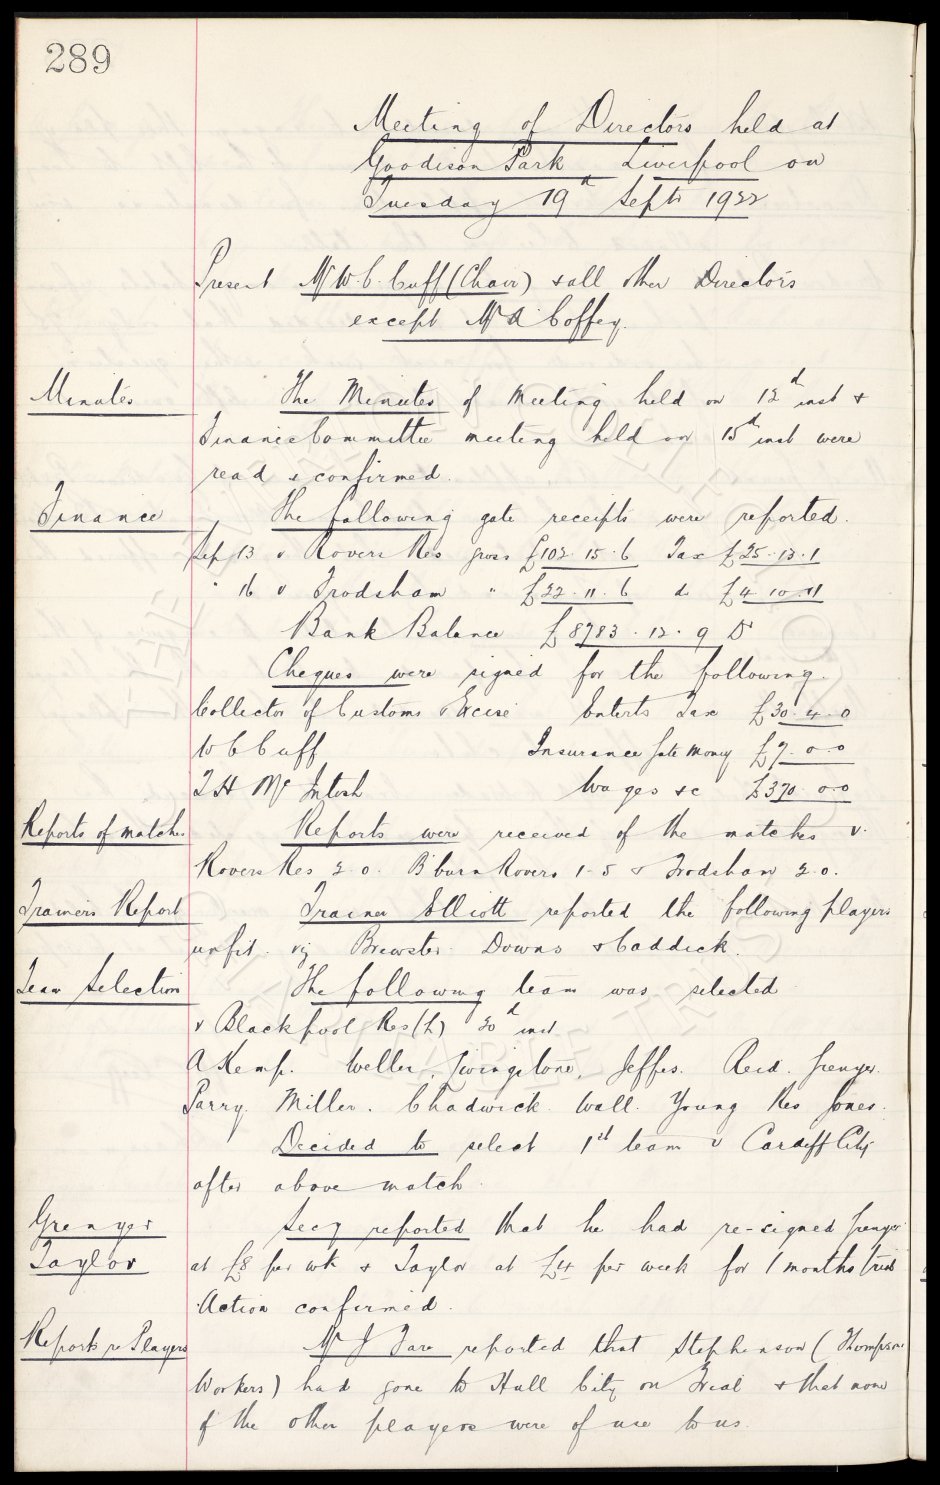 289
Meeting of Directors held at
Goodison Park Liverpool on
Tuesday 19th Septr 1922
Present Mr W.C. Cuff (Chair) & all other Directors
except Mr A Coffey.
Minutes The Minutes of Meeting held on 12th inst &
Finance Committee meeting held on 15th inst were
read & confirmed.
Finance The following gate receipts were reported.
Sep 13 v Rovers Res gross £102.15.6 Tax £25.13.1
" 16 v Frodsham " £22.11.6 do £4.10.11
Bank Balance £8783.12.9 Dr
Cheques were signed for the following.
Collector of Customs & Excise Enterts Tax £30.4.0
W C Cuff Insurance Gate Money £7.0.0
T H McIntosh Wages &c £370.0.0
Reports of matches Reports were received of the matches v.
Rovers Res 2-0. B'burn Rovers 1-5 & Frodsham 2-0.
Trainers Report Trainer Elliott reported the following players
unfit. viz Brewster. Downs & Caddick.
Team Selection The following team was selected
v Blackpool Res (h) 20th inst
A Kemp. Weller, Livingstone, Jeffs. Reid. Grenyer.
Parry. Miller. Chadwick. Wall. Young Res Jones.
Decided to select 1st team v Cardiff City
after above match.
Grenyer Secy reported that he had re-signed Grenyer
Taylor at £8 per wk & Taylor at £4 per week for 1 months trial
Action confirmed.
Reports re Players Mr J Fare reported that Stephenson (Thompson
Workers) had gone to Hull City on Trial & that none
of the other players were of use to us.